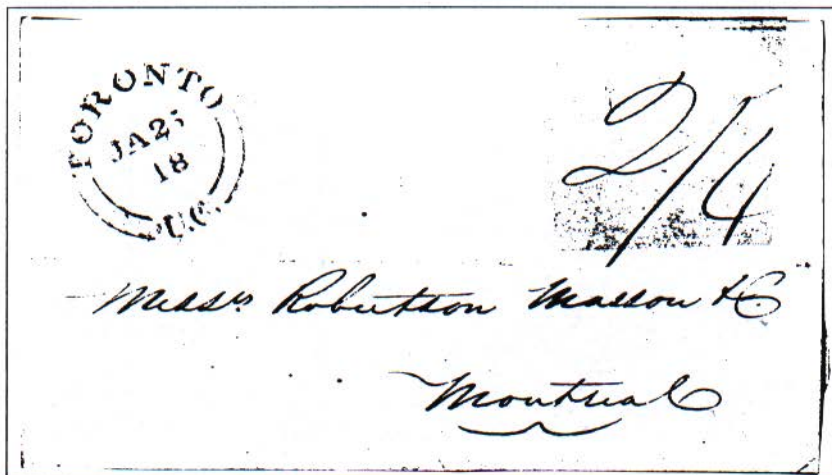 TORONTO
JA 25
18
U.C.
2/4
Messrs Robertson Masson & Co
Montreal